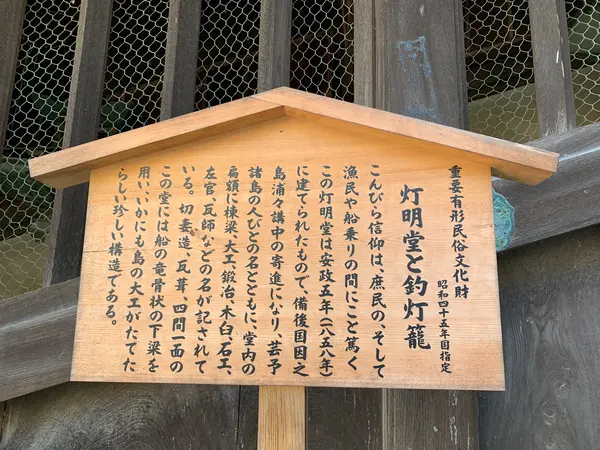 重要有形民俗文化財
昭和四十五年国指定
灯明堂と釣灯籠
こんぴら信仰は、庶民の、そして
漁民や船乗りの間にこと篤く
この灯明堂は安政五年(一八五八年)
に建てられたもので、備後国因之
島浦々講中の寄進になり、芸予
諸島の人びとの名とともに、堂内の
扁額に棟梁、大工鍛冶、木臼石工、
左官、瓦師などの名が記されて
いる。切妻造、瓦葺、四間一面の
この堂には船の竜骨状の下梁を
用い、いかにも島の大工がたてた
らしい珍しい構造である。